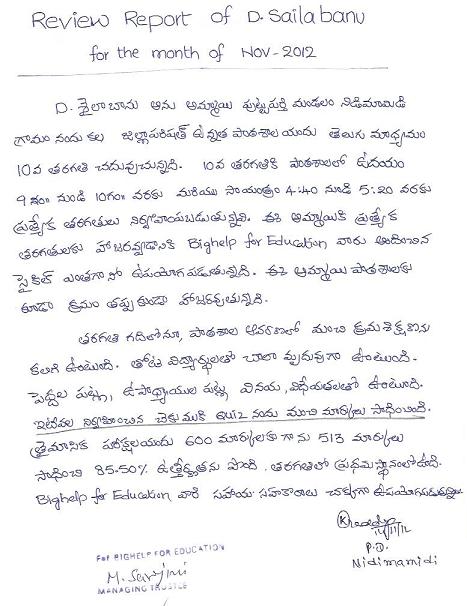 Review Report of D. Sailabanu
for the month of Nov-2012
D. శైలాబాను అను అమ్మాయి పుట్టపర్తి మండలం నిడిమామిడి
గ్రామం నందు కల జిల్లాపరిషత్ ఉన్నత పాఠశాల యందు తెలుగు మాధ్యమం
10వ తరగతి చదువుచున్నది. 10వ తరగతికి పాఠశాలలో ఉదయం
9 గం౹౹ నుండి 10గం౹౹ వరకు మరియు సాయంత్రం 4:40 నుండి 5:20 వరకు
ప్రత్యేక తరగతులు నిర్వహింపబడుతున్నవి. ఈ అమ్మాయికి ప్రత్యేక
తరగతులకు హాజరవ్వడానికి Bighelp for Education వారు అందించిన
సైకిల్ ఎంతగానో ఉపయోగపడుతున్నది. ఈ అమ్మాయి పాఠశాలకు
కూడా క్రమం తప్పకుండా హాజరవుతున్నది.
తరగతి గదిలోనూ, పాఠశాల ఆవరణలో మంచి క్రమశిక్షణను
కలిగి ఉంటుంది. తోటి విద్యార్థులతో చాలా మృదువుగా ఉంటుంది.
పెద్దల పట్ల, ఉపాధ్యాయుల పట్ల వినయ, విధేయతలతో ఉంటుంది.
ఇటీవల నిర్వహించిన చెకుముకి Quiz నందు మంచి మార్కులు సాధించింది.
త్రైమాసిక పరీక్షలయందు 600 మార్కులకు గాను 513 మార్కులు
సాధించి 85-50% ఉత్తీర్ణతను పొంది, తరగతిలో ప్రథమస్థానంలో ఉంది.
Bighelp for Education వారి సహాయ సహకారాలు చక్కగా ఉపయోగపడుతున్నవి.
14/11/12
P.D.
Nidimamidi
For BIGHELP FOR EDUCATION
M. Sarojini
MANAGING TRUSTEE